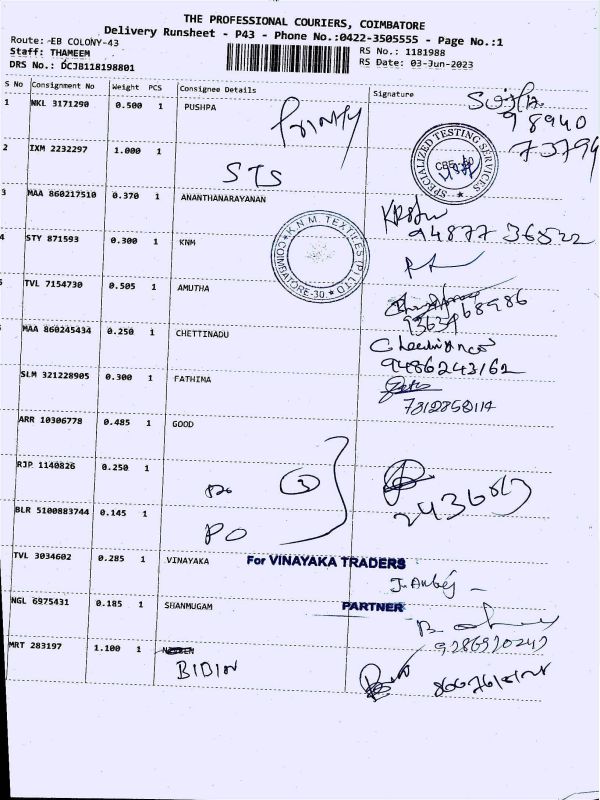 THE PROFESSIONAL COURIERS, COIMBATORE
Delivery Runsheet - P43 - Phone No.:0422-3505555 - Page No.:1
Route: EB COLONY-43
Staff: THAMEEM
DRS No.: DCJB118198801
RS No.: 1181988
RS Date: 03-Jun-2023
S No Consignment No Weight PCS Consignee Details Signature
1 NKL 3171290 0.500 1 PUSHPA
98940
73794
2 IXM 2232297 1.000 1
STS
SPECIALIZED TESTING SERVICES
3 MAA 860217510 0.370 1 ANANTHANARAYANAN
94877 36522
4 STY 871593 0.300 1 KNM
K.N.M. TEXTILES (P) LTD
COIMBATORE-30
TVL 7154730 0.505 1 AMUTHA
9363468986
MAA 860245434 0.250 1 CHETTINADU
9486243162
SLM 321228905 0.300 1 FATHIMA
7812858114
ARR 10306778 0.485 1 GOOD
RJP 1140826 0.250 1
3
BLR 5100883744 0.145 1
PO
TVL 3034602 0.285 1 VINAYAKA
For VINAYAKA TRADERS
NGL 6975431 0.185 1 SHANMUGAM
PARTNER
MRT 283197 1.100 1
BIDIN